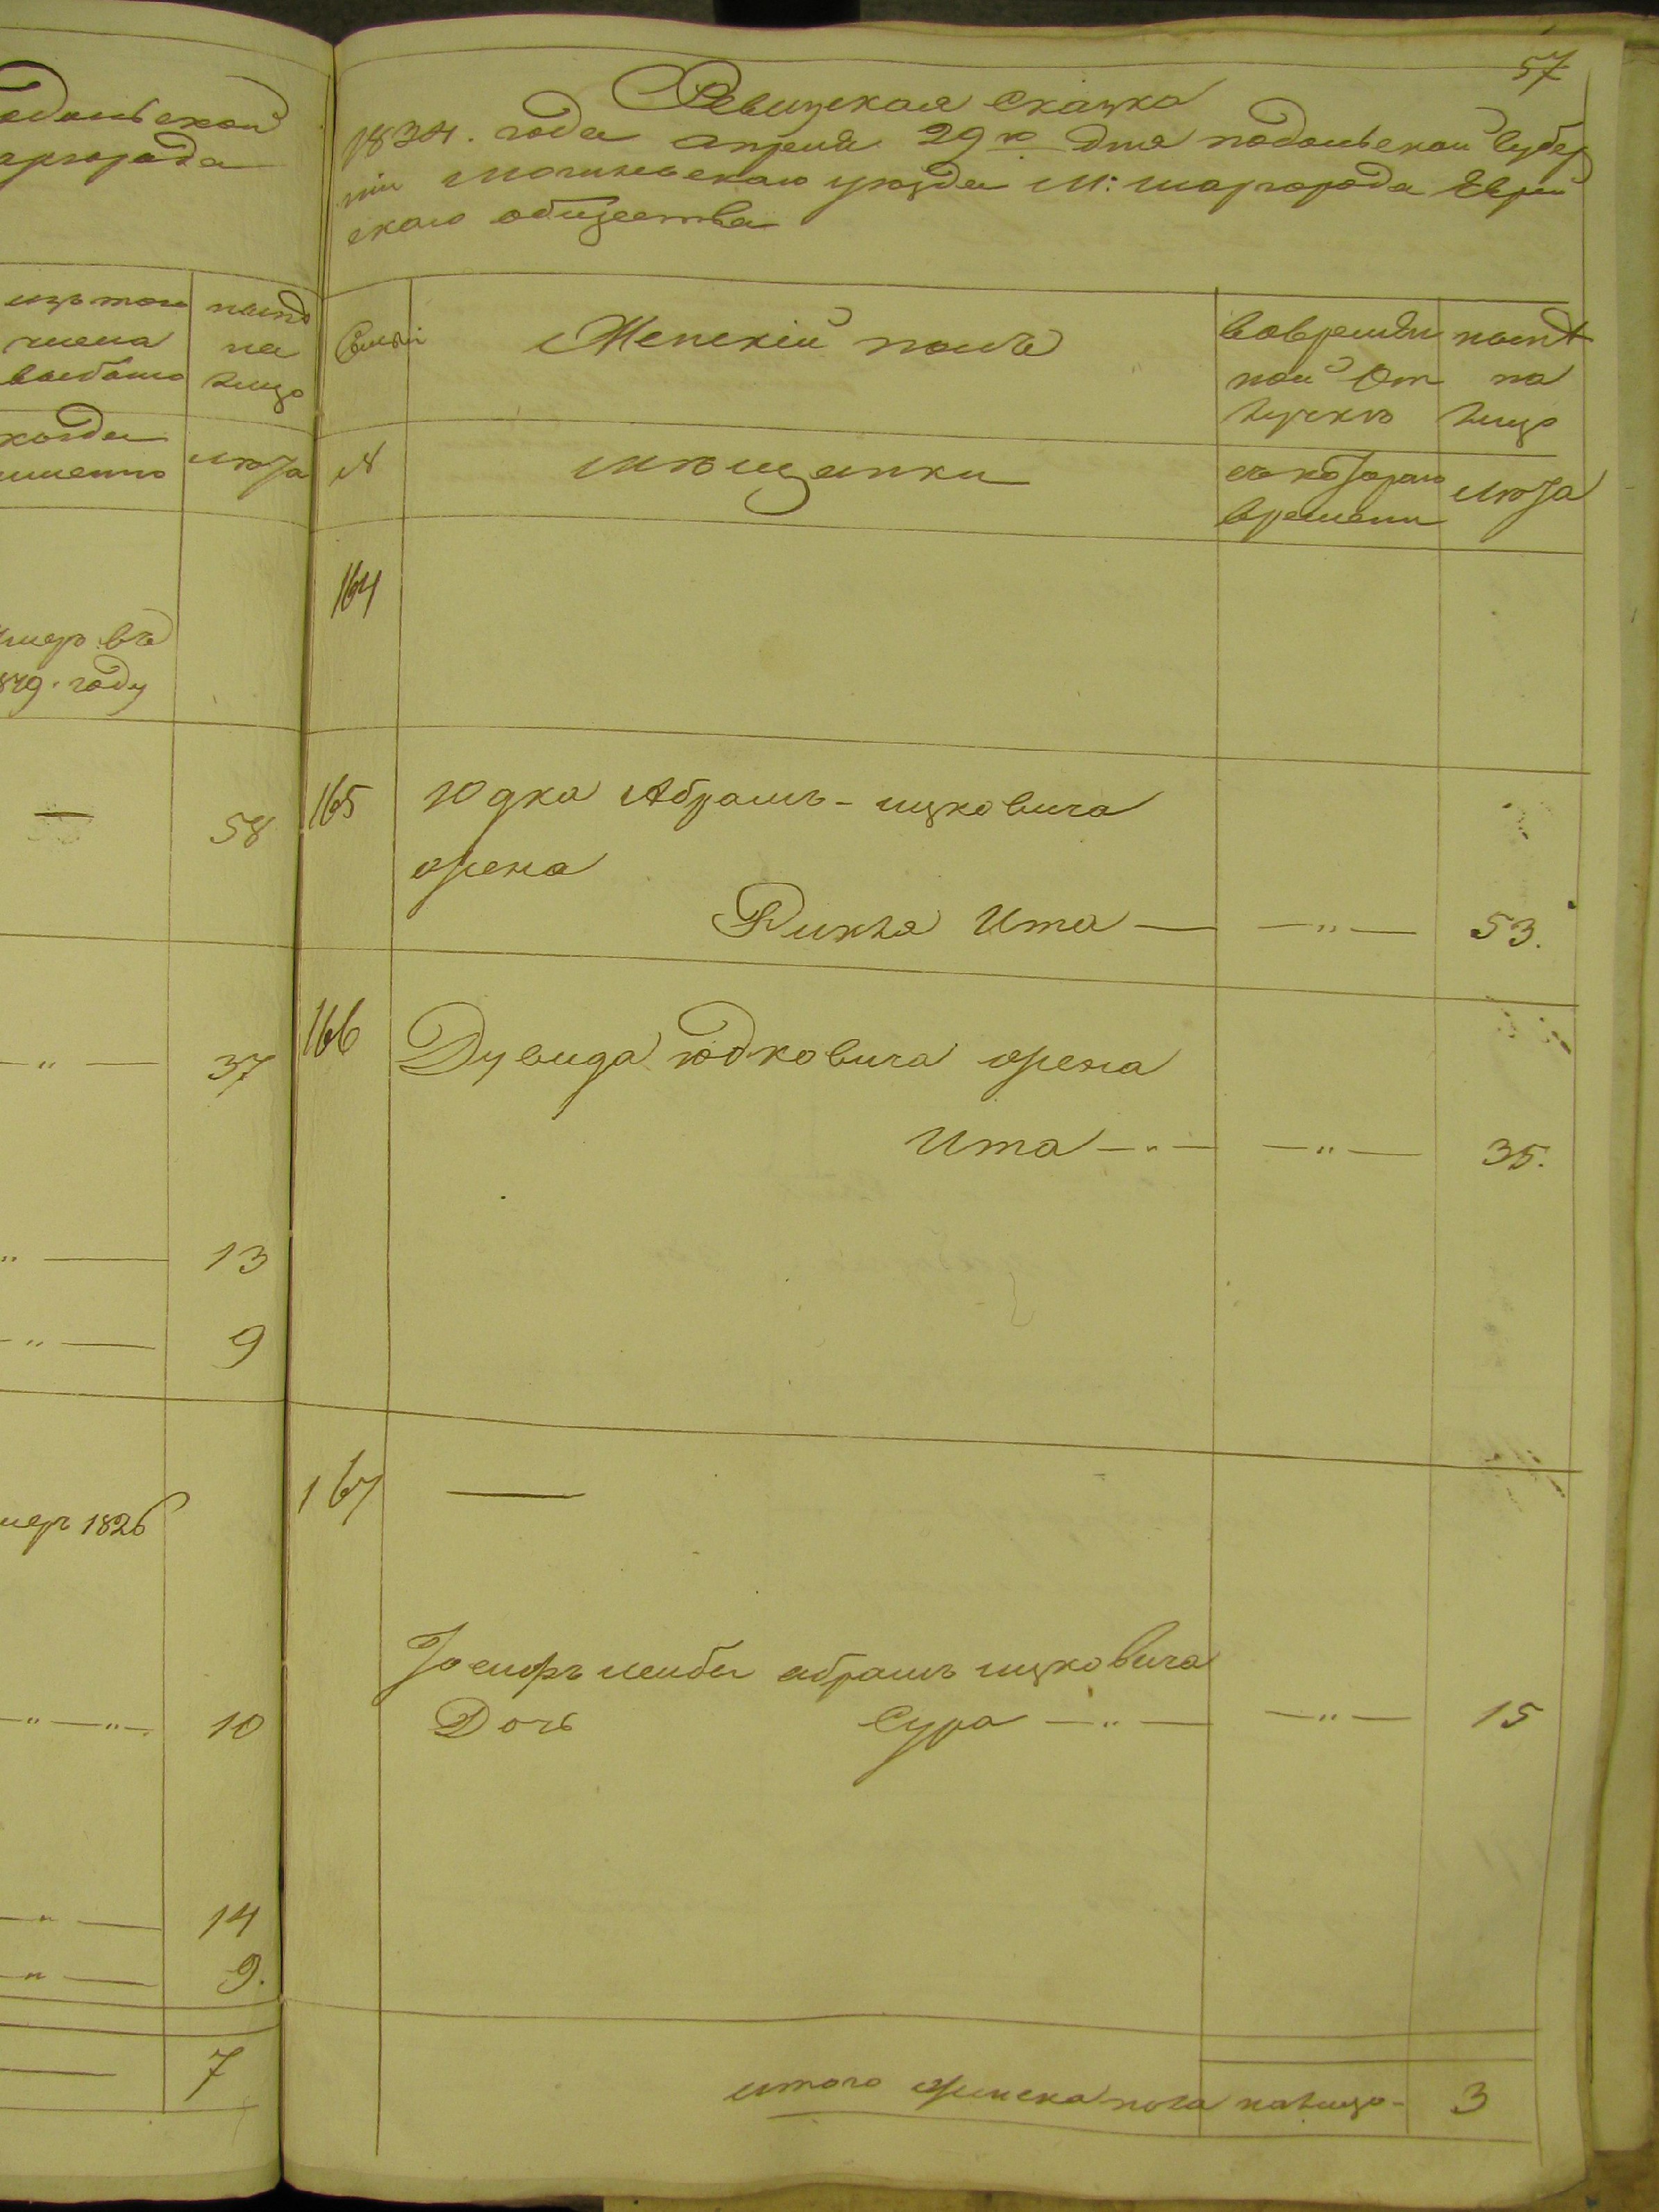 одольской
аргорода
изъ того
числа
выбыло
налицо
на
лицо
когда
именно
лѣта
умеръ въ
1819. году
58
37
13
9
меръ 1826
10
14
9.
7
57
Ревизская Сказка
1834. года апреля 29го дня подольской Губер
ніи могилевскаго уѣзда М: шаргорода Еврей
скаго общества
Семьи
Женскій полъ
вовремѣн
ной От
лучкѣ
на
лицо
№
мѣщанки
съ котораго
времени
лѣта
164
165
Юдка Абрамъ-ицковича
жена
Рикля Ита — — " — 53.
166
Дувида юдковича жена
Ита — " — — " — 35.
167
Іосифъ лейбы абрамъ ицковича
Дочь Сура — " — — " — 15
итого женска пола налицо - 3